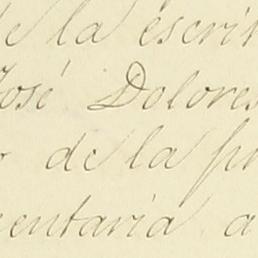 de la escrit
José Dolores
de la pr
entaria a